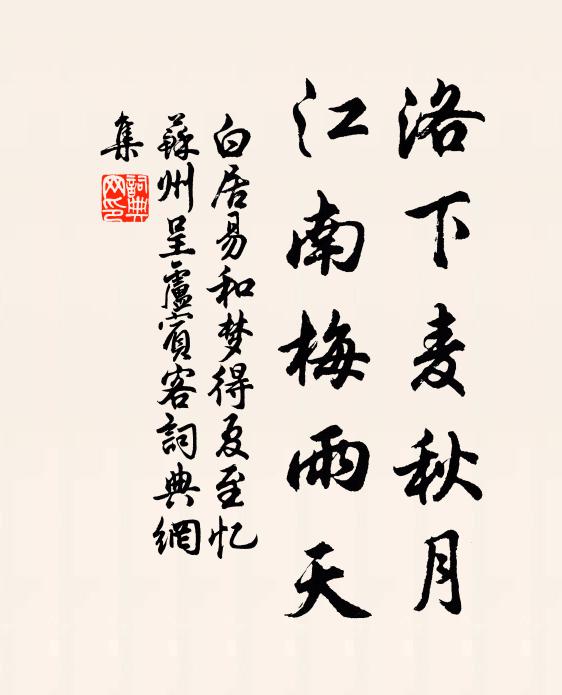 洛下麦秋月
江南梅雨天
白居易和梦得夏至忆
蘇州呈盧賓客詞典網
集
詞典网印